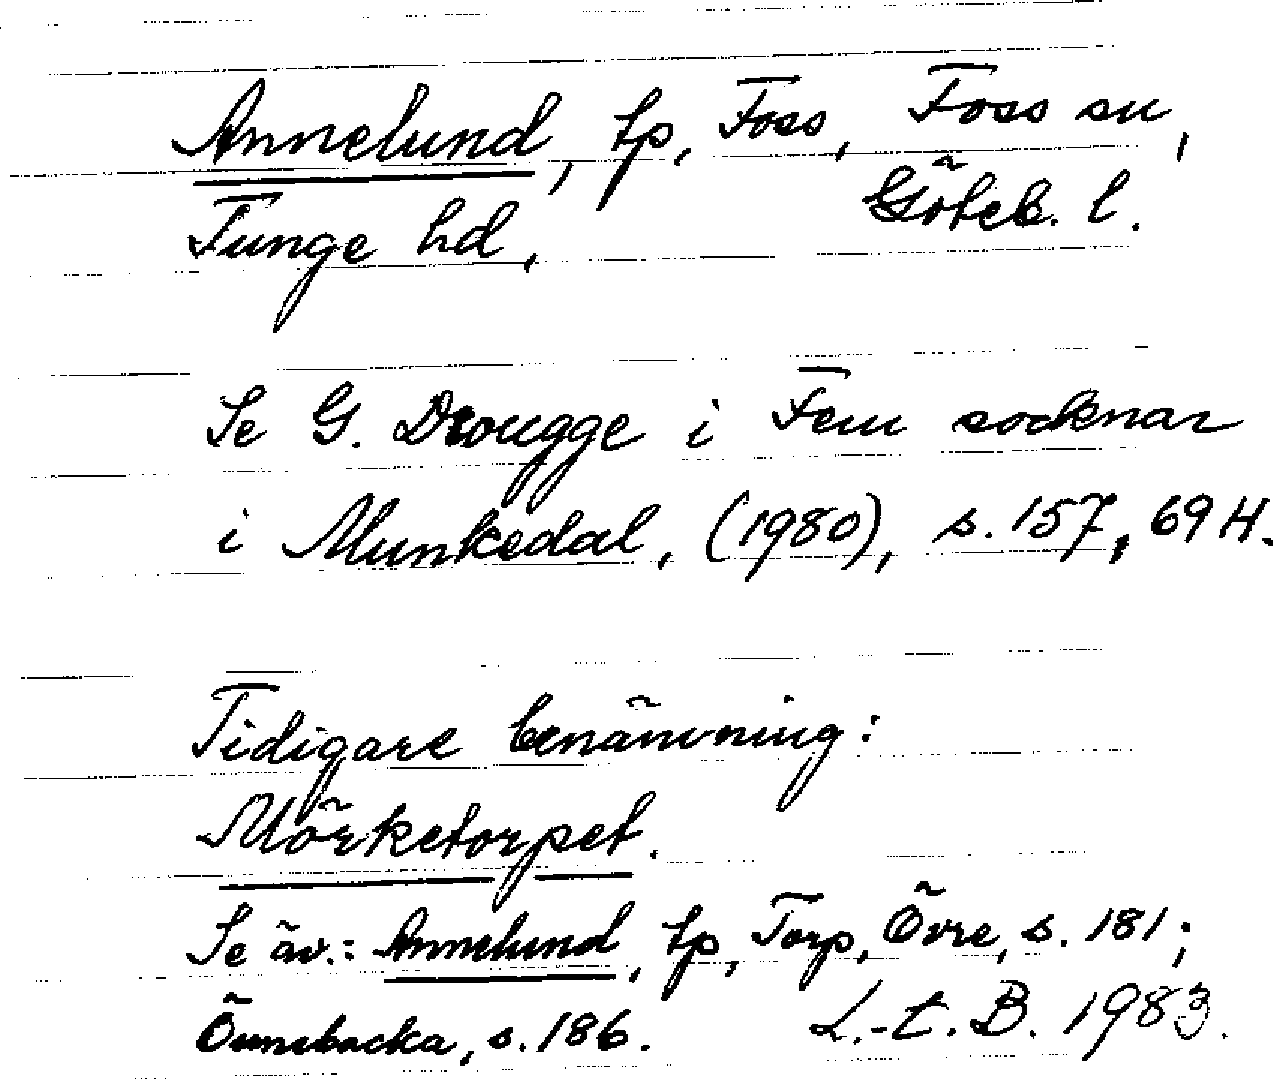 Annelund, tp, Foss, Foss sn,
Tunge hd, Göteb. l.
Se G. Drougge i Fem socknar
i Munkedal, (1980), s. 157, 69 H.
Tidigare benämning:
Mörketorpet.
Se äv.: Annelund, tp, Torp, Övre, s. 181;
Önnebacka, s. 186. L.-t. B. 1983.